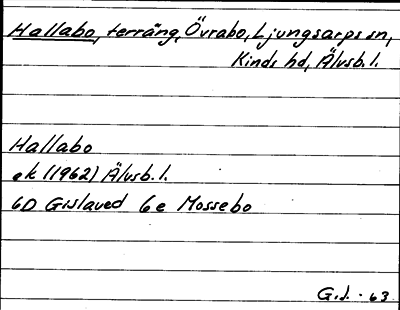 Hallabo, terräng, Övrabo, Ljungsarps sn,
Kinds hd, Älvsb. l.
Hallabo
ek (1962) Älvsb. l.
6D Gislaved 6e Mossebo
G.J. - 63.